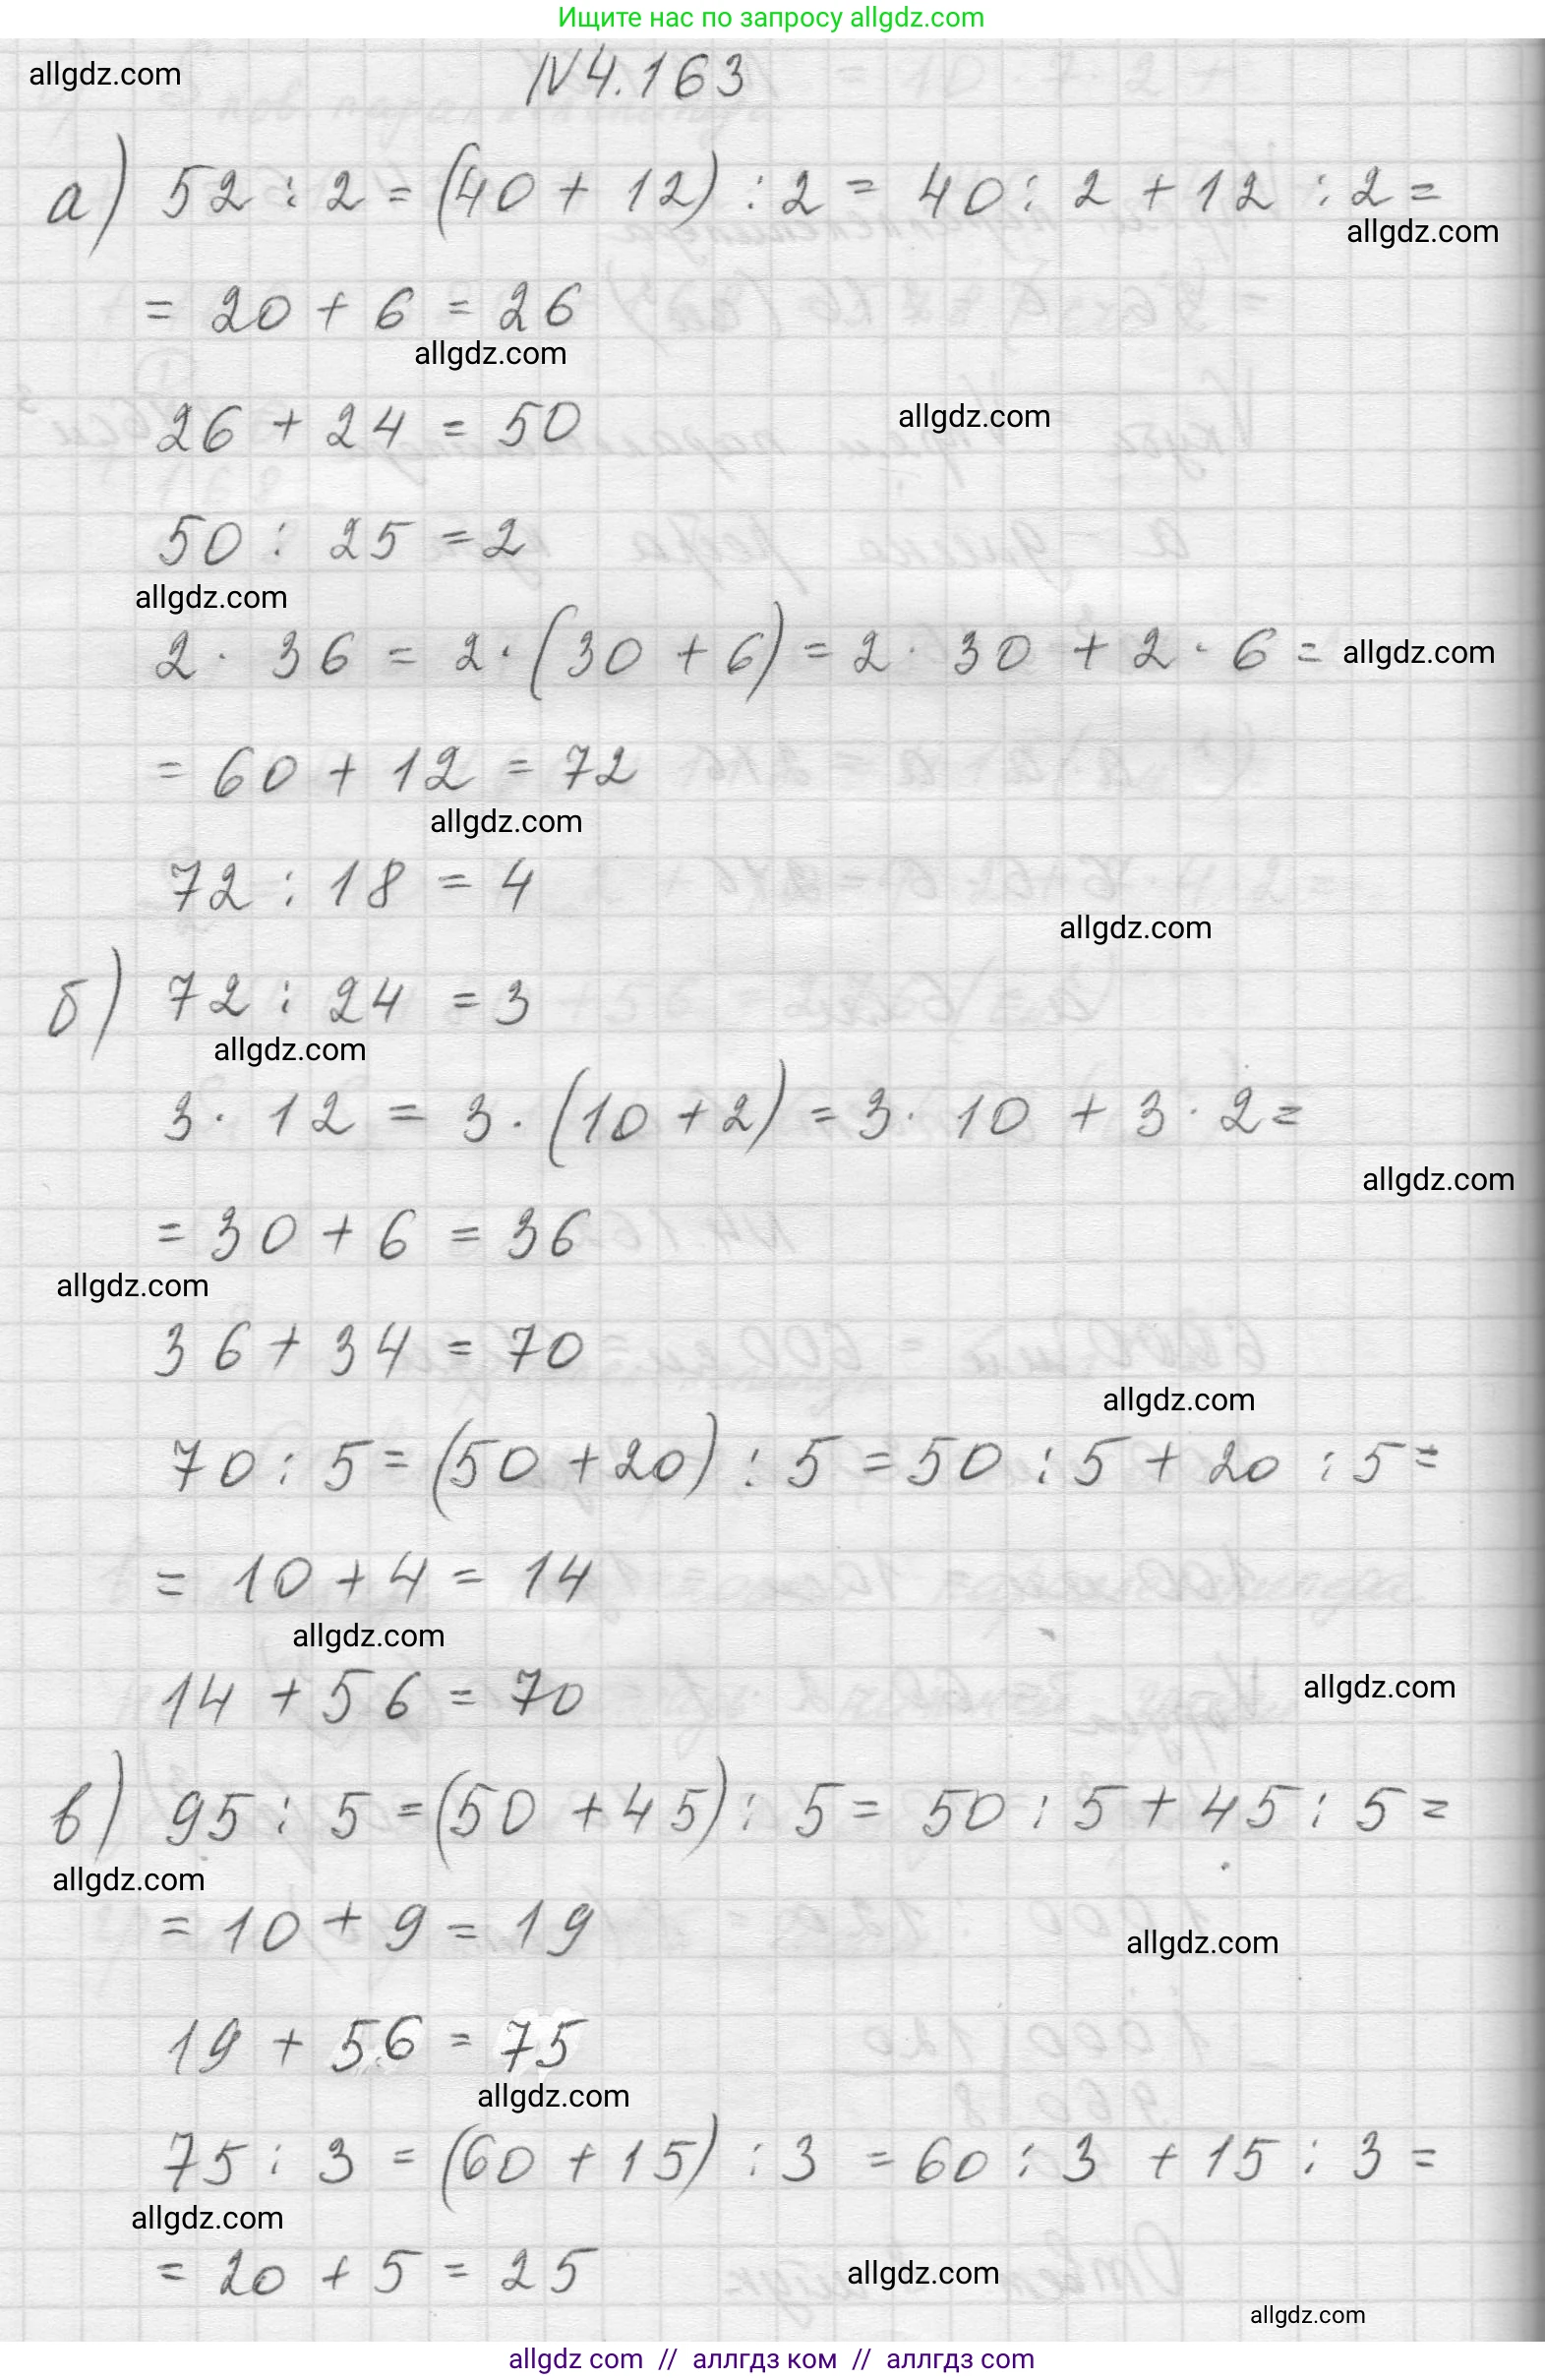 Ищите нас по запросу allgdz.com
allgdz.com
N4.163
а) 52 : 2 = (40 + 12) : 2 = 40 : 2 + 12 : 2 =
allgdz.com
= 20 + 6 = 26
allgdz.com
26 + 24 = 50
allgdz.com
50 : 25 = 2
allgdz.com
2 · 36 = 2 · (30 + 6) = 2 · 30 + 2 · 6 =
allgdz.com
= 60 + 12 = 72
allgdz.com
72 : 18 = 4
allgdz.com
б) 72 : 24 = 3
allgdz.com
3 · 12 = 3 · (10 + 2) = 3 · 10 + 3 · 2 =
allgdz.com
= 30 + 6 = 36
allgdz.com
36 + 34 = 70
allgdz.com
70 : 5 = (50 + 20) : 5 = 50 : 5 + 20 : 5 =
= 10 + 4 = 14
allgdz.com
14 + 56 = 70
allgdz.com
в) 95 : 5 = (50 + 45) : 5 = 50 : 5 + 45 : 5 =
allgdz.com
= 10 + 9 = 19
allgdz.com
19 + 56 = 75
allgdz.com
75 : 3 = (60 + 15) : 3 = 60 : 3 + 15 : 3 =
allgdz.com
= 20 + 5 = 25
allgdz.com
allgdz.com
allgdz com // аллгдз ком // аллгдз com